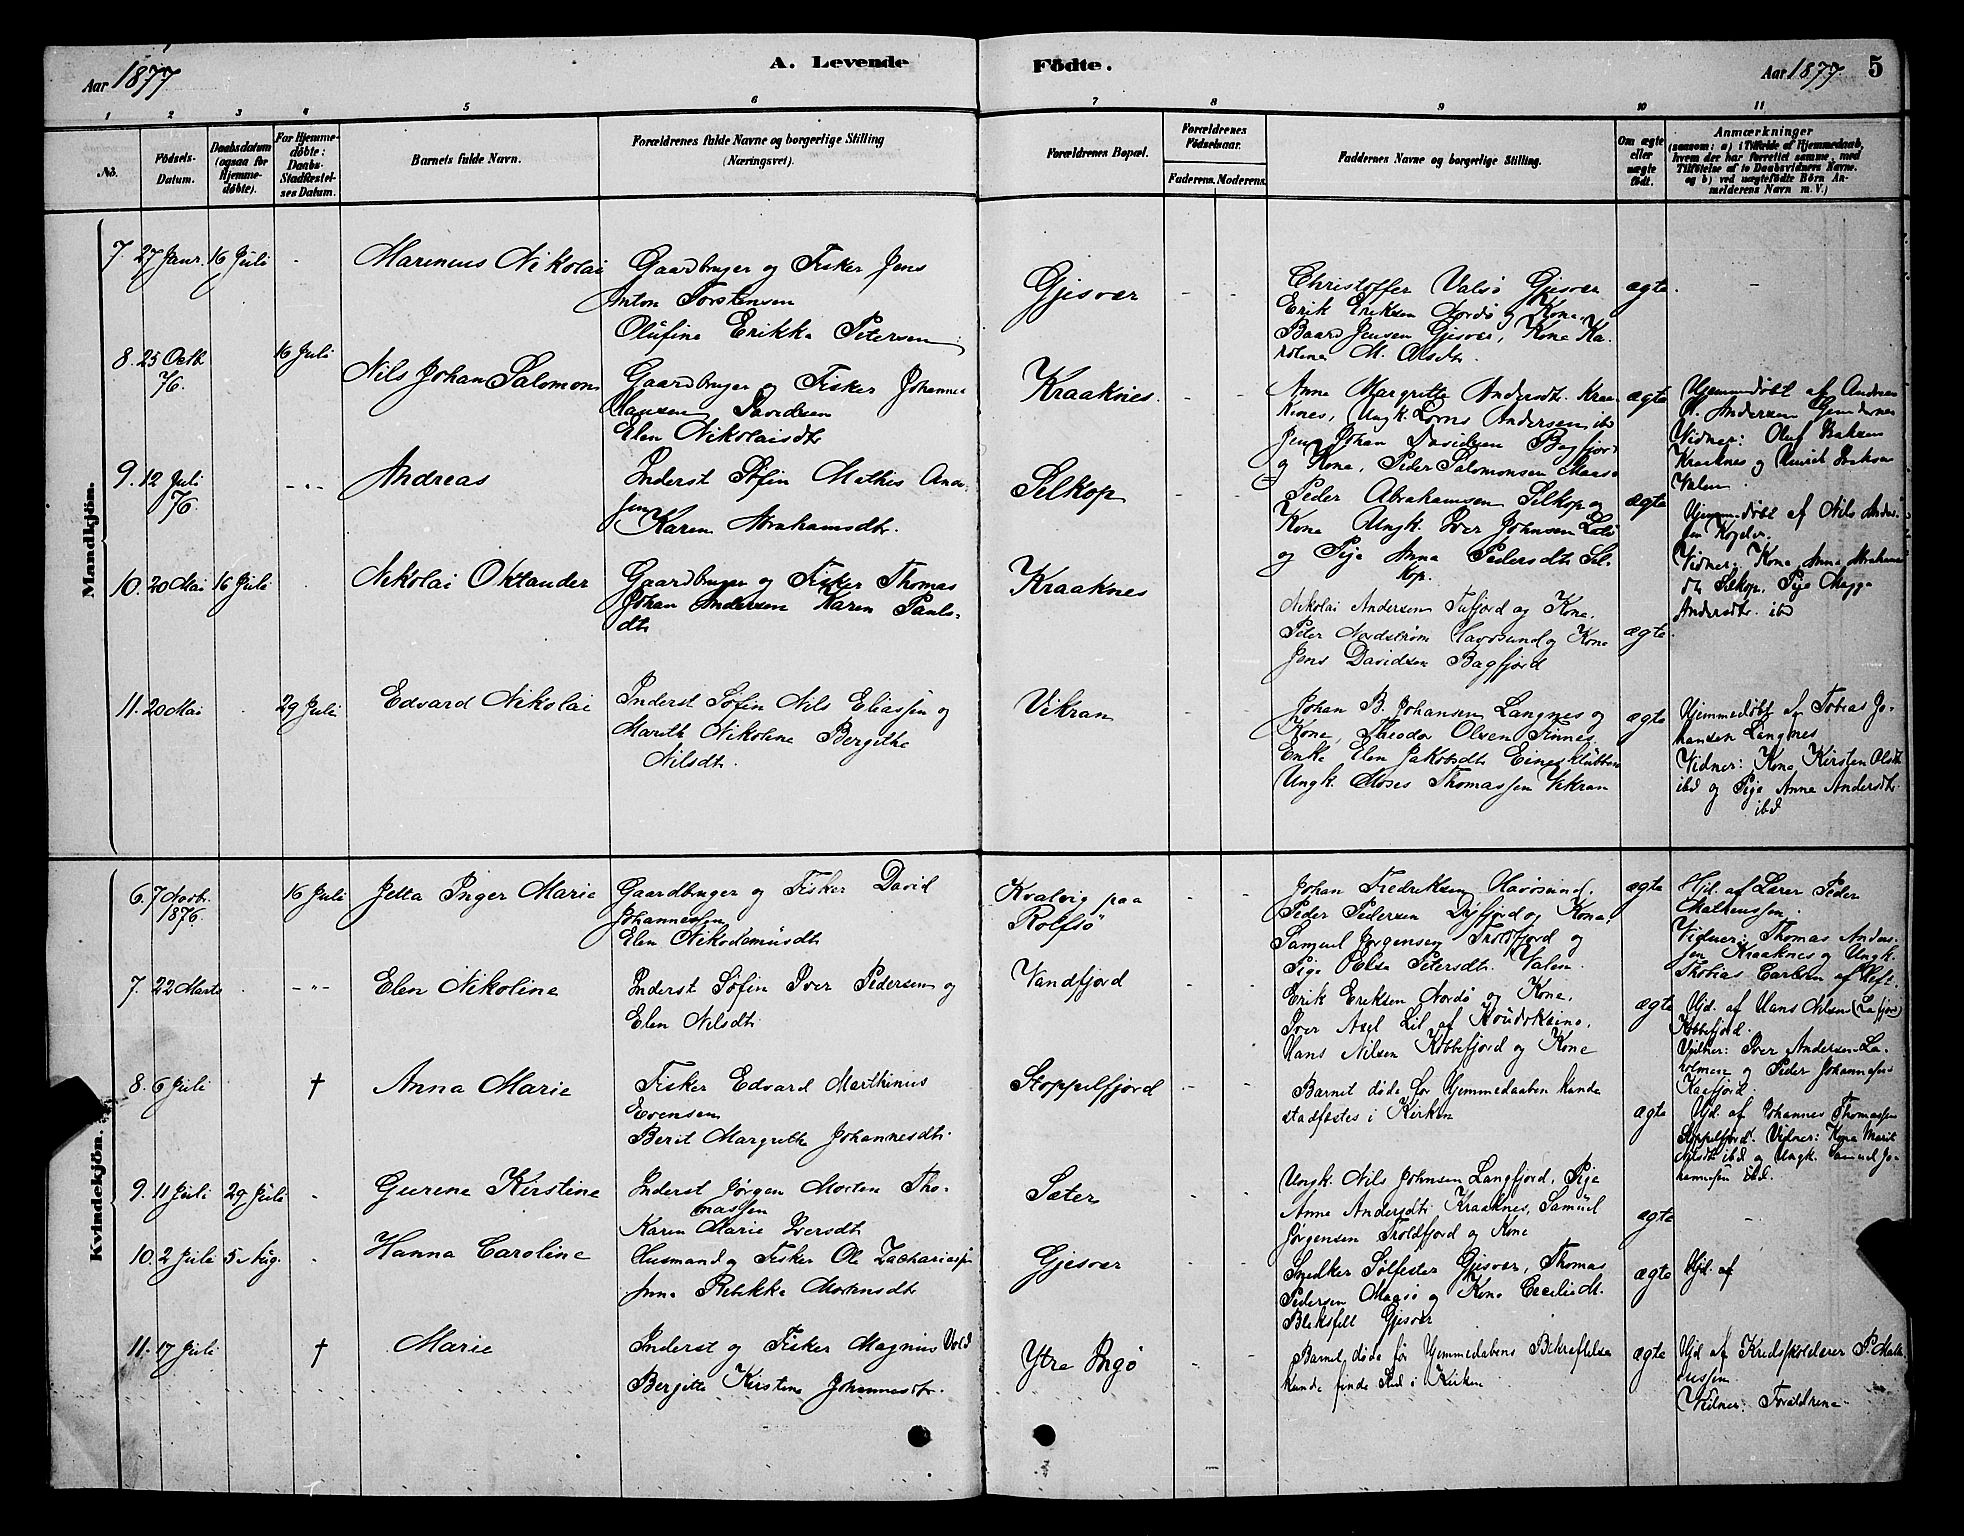 Aar 1877
A. Levende
Födte.
Aar 1877.
5
1 2 3 4 5 6 7 8 9 10 11
No.
Födsels-
Datum.
Daabsdatum
(ogsaa for
Hjemme-
döbte).
For Hjemme-
döbte:
Daabs-
Stadfæstel-
ses Datum.
Barnets fulde Navn.
Forældrenes fulde Navne og borgerlige Stilling
(Næringsvei).
Forældrenes Bopæl.
Forældrenes
Födselsaar.
Faderens. Moderens.
Faddernes Navne og borgerlige Stilling.
Om ægte
eller
uægte
födt.
Anmærkninger
(saasom: a) i Tilfælde af Hjemmedaab,
hvem der har forrettet samme, med
Tilföielse af to Daabsvidners Navne.
og b) ved uægtefödte Börn An-
melderens Navn m. V.)
Mandkjön.
7. 27 Janr. 16 Juli
Marencus Nikolai
Gaardbruger og Fisker Jens
Anton Torstensen
Olufine Erikka Petersen
Gjesvær
Christoffer Valsø Gjesvær
Erik Eriksen Nordø og Kone
Baard Jensen Gjesvær, Kone Ka-
rolina M. Olsdtr.
ægte.
8. 25 Octb.
76.
16 Juli
Nils Johan Salomon
Gaardbruger og Fisker Johannes
Hansen Davidsen
Elen Nikolaisdtr
Kraaknes.
Anne Margrethe Andersdtr. Kraa-
knes, Ungk. Lorns Andersen ibd
Jens Johan Davidsen Bagfjord
og Kone, Peder Salomonsen Maasø
ægte
Hjemmedøbt af Andreas
Andersen
Vidner: Oluf Isaksen
Kraaknes og Isaksen
Valen.
9. 12 Juli
76
- " -
Andreas
Inderst Søfin Mathis Ander-
sen
Karen Abrahamsdtr.
Selkop
Peder Abrahamsen Selkop og
Kone Ungk. Iver Johnsen
og Pige Anna Pedersdtr Sel-
kop.
ægte
Hjemmedøbt af Nils Ander-
sen
Vidner, Kone Anna Abrahams
dtr Selkop. Pige Magga
Andersdtr. ibd
10. 20 Mai 16 Juli
Nikolai Oktander
Gaardbruger og Fisker Thomas
Johan Andersen Karen Pauls-
dtr
Kraaknes
Nikolai Andersen Tufjord og Kone.
Peter Nordstrøm Havøsund og Kone
Jens Davidsen Bagfjord
ægte.
11. 20 Mai
29 Juli
Edvard Nikolai
Inderst Søfin Nils Eliassen og
Marith Nikoline Bergithe
Nilsdtr.
Vikran
Johan B. Johansen Langnes og
Kone, Theodor Olsen Finnes
Enke Elen Jakobsdtr Einesklubben
Ungk. Moses Thomassen Vikran
ægte
Hjemmedøbt af Tobias Jo-
hansen Langnes
Vidner: Kone Kirsten Olsdtr
ibd og Pige Anna Andersdtr.
ibd
Kvindekjön.
6. 7 Novbr.
1876.
16 Juli
Jetta Inger Marie
Gaardbruger og Fisker David
Johannessen
Elen Nikodemusdtr
Kvalvig paa
Rolfsø
Johan Fredriksen Havøsund.
Peder Pedersen Dyfjord og Kone.
Samuel Jørgensen Troldfjord og
Pige Elsa Petersdtr. Valen.
ægte
Hjd. af Lærer Peder
Matheussen.
Vidner: Thomas Ander-
sen Kraaknes og Ungk.
Thobias Carlsen af Heft.
7. 22 Marts
- " -
Elen Nikoline
Inderst Søfin Iver Pedersen og
Elen Nilsdtr
Vandfjord
Erik Eriksen Nordø og Kone.
Iver Axel Lil af Koudokeino.
Hans Nilsen Kobbefjord og Kone
ægte
Hjd. af Hans Nilsen (Lafjord)
Kobbefjord.
Vidner: Iver Andersen La-
holmen og Peder Johannesen
Kaafjord.
8. 6 Juli
†
Anna Marie
Fisker Edvard Marthinius
Evensen
Berit Margrethe Johannesdtr.
Stoppelfjord
Barnet døde før Hjemmedaaben kunde
stadfæstes i Kirken
ægte
Hjd. af Johannes Thomassen
Stoppelfjord. Vidner: Kone Marit
Nilsdtr ibd og Ungk. Samuel Jo-
hannesen ibd.
9. 11 Juli 29 Juli
Gurene Kirstine
Inderst Jørgen Morten Tho-
massen
Karen Marie Iversdtr
Sæter
Ungk. Nils Johnsen Langfjord, Pige
Anne Andersdtr Kraaknes, Samuel
Jørgensen Troldfjord og Kone
ægte
10. 2 Juli 5 Aug.
Hanna Caroline
Husmand og Fisker Ole Zachariassen
Anna Rebekka Mortensdtr
Gjesvær
Snedker Sølfester Gjesvær, Thomas
Pedersen Maasø og Kone Cecilie M.
Bleksfell Gjesvær
ægte
Hjd. af
11. 17 Juli
†
Marie
Inderst og Fisker Magnus Vold
Bergitte Kirstine Johannesdtr.
Ytre Ingø
Barnet døde før Hjemmedabens Bekræftelse
kunde finde Sted i Kirken
ægte
Hjd af Kredsskolelærer P. Mathe-
ussen.
Vidner: Forældrene